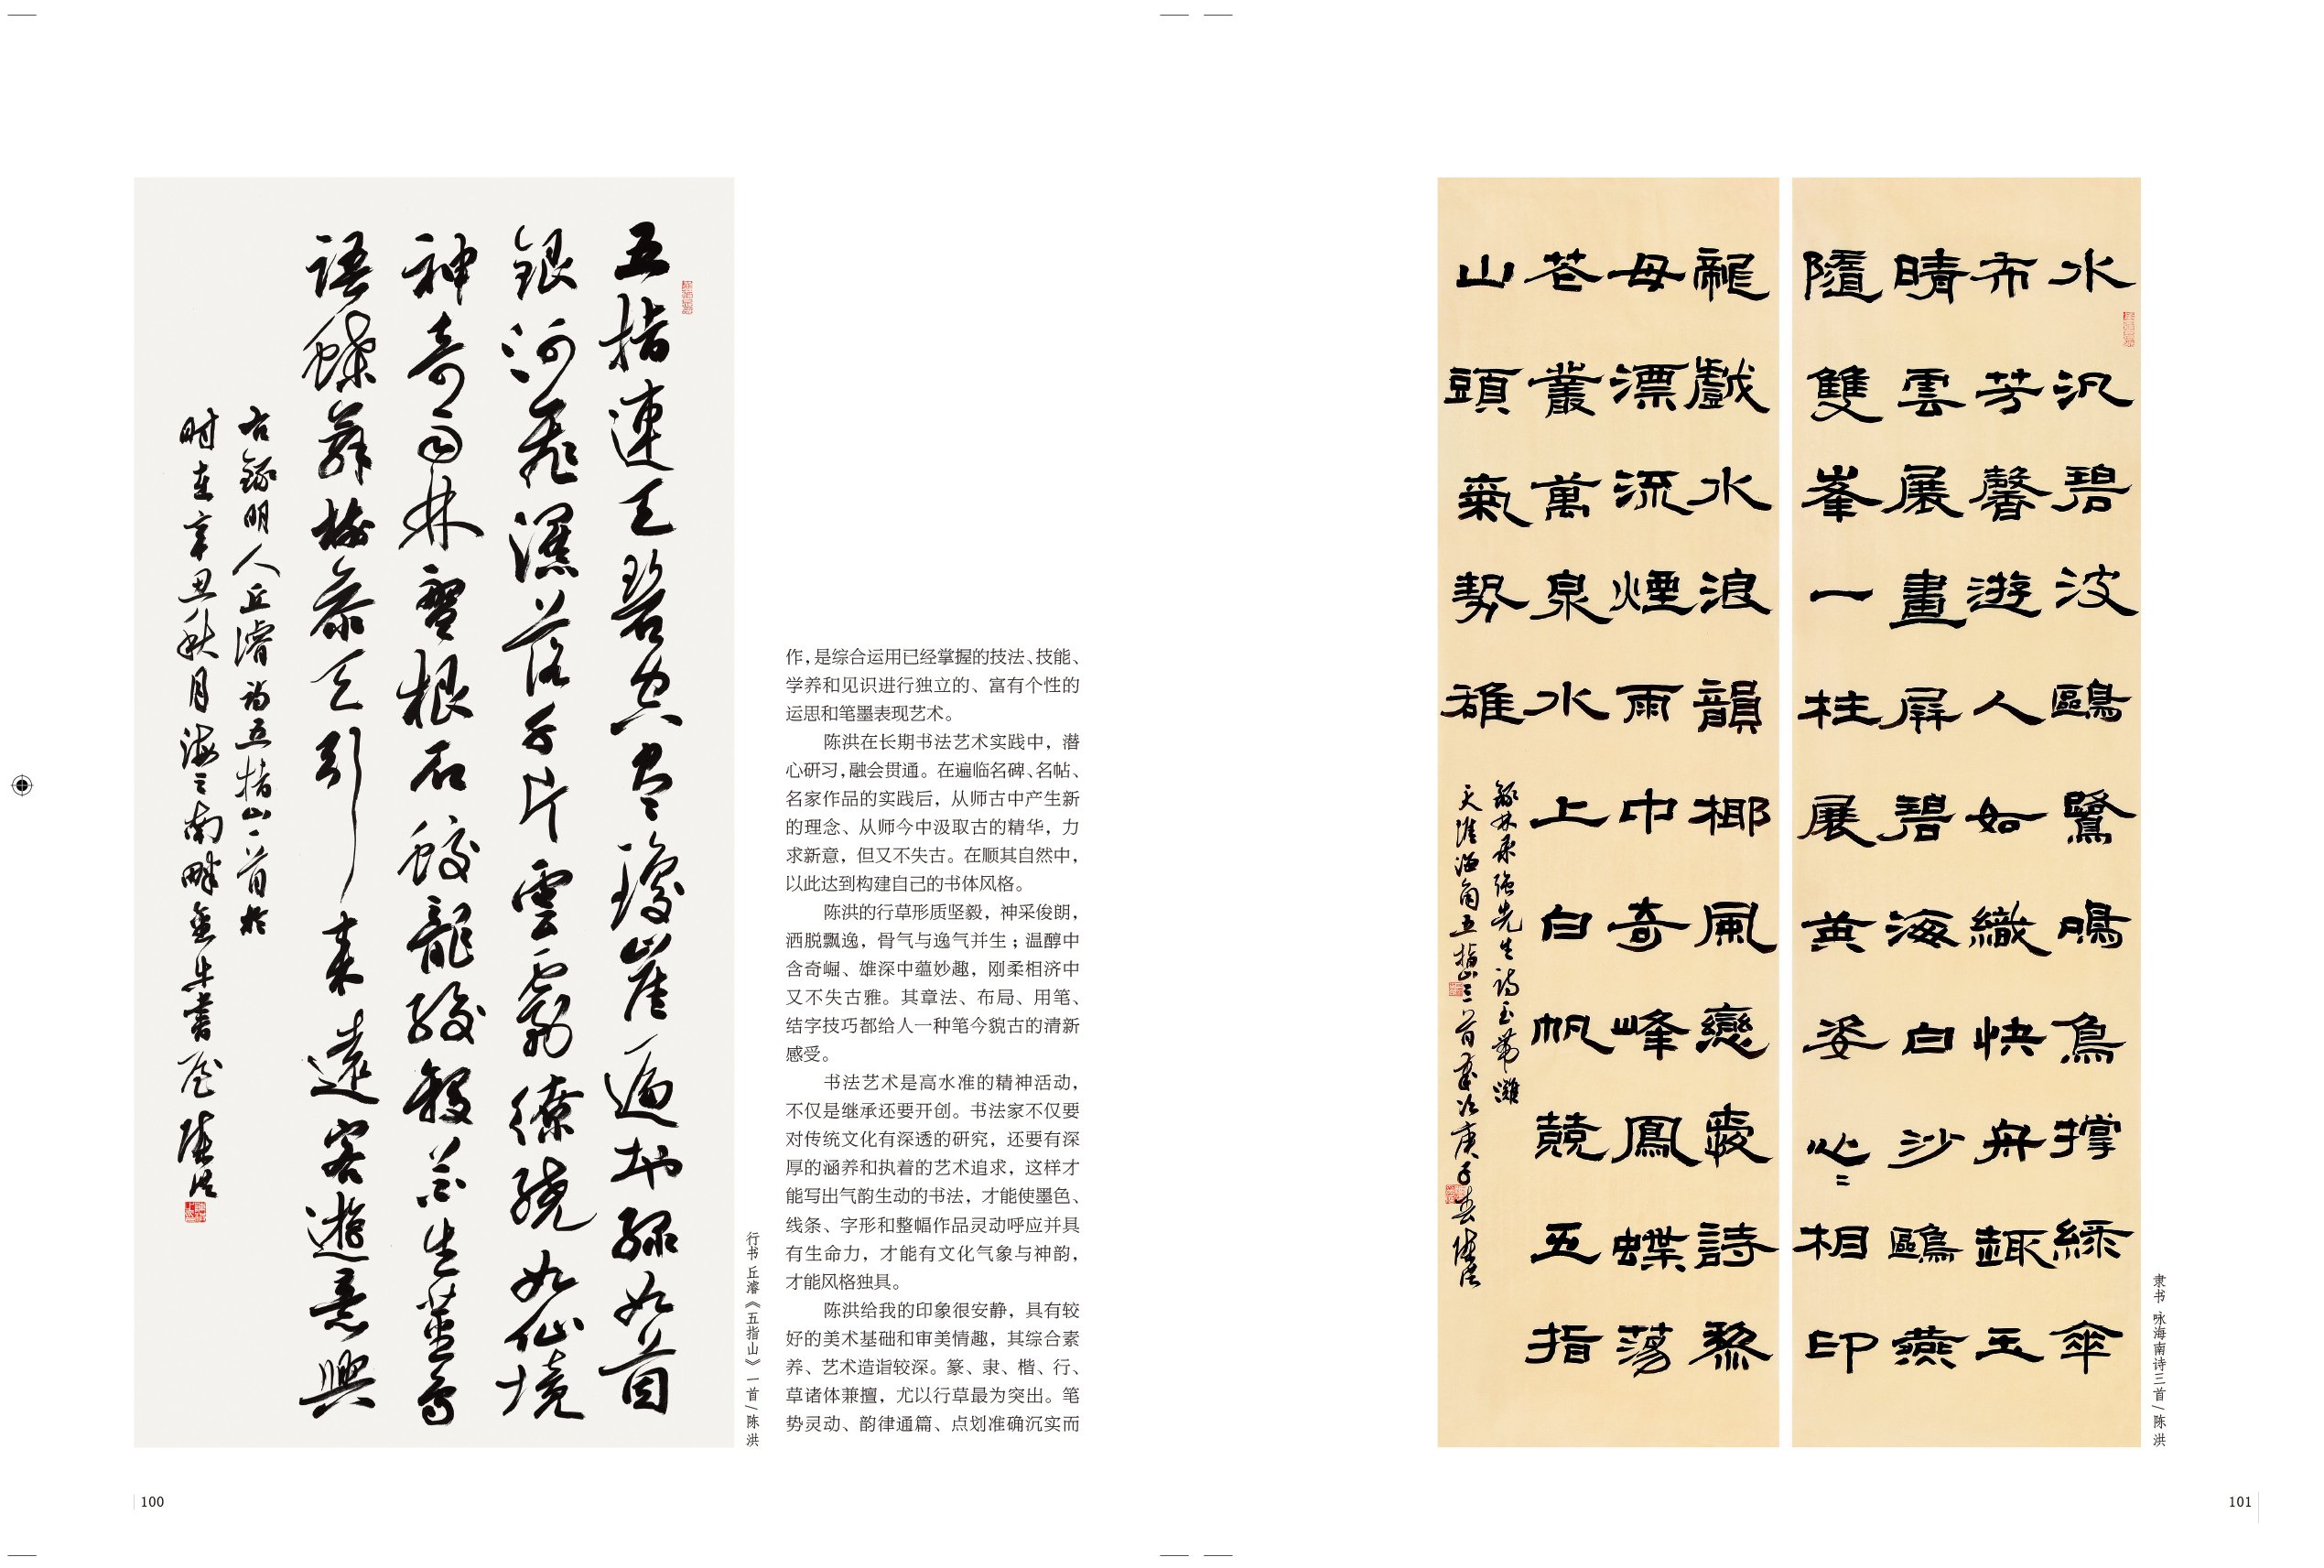 五指連天碧空尽瓊崖遍地綠如茵
銀河飛瀑落千片雲霧繚繞如仙境
神奇雨林根石蛟龍花生
語蝶舞天引來遠客遊意興
右錄明人丘濬詩五指山一首於
时在辛丑秋月海之南畔金牛書屋陳洪
行书 丘濬《五指山》一首/陈 洪
作，是综合运用已经掌握的技法、技能、
学养和见识进行独立的、富有个性的
运思和笔墨表现艺术。
陈洪在长期书法艺术实践中，潜
心研习，融会贯通。在遍临名碑、名帖、
名家作品的实践后，从师古中产生新
的理念、从师今中汲取古的精华，力
求新意，但又不失古。在顺其自然中，
以此达到构建自己的书体风格。
陈洪的行草形质坚毅，神采俊朗，
洒脱飘逸，骨气与逸气并生；温醇中
含奇崛、雄深中蕴妙趣，刚柔相济中
又不失古雅。其章法、布局、用笔、
结字技巧都给人一种笔今貌古的清新
感受。
书法艺术是高水准的精神活动，
不仅是继承还要开创。书法家不仅要
对传统文化有深透的研究，还要有深
厚的涵养和执着的艺术追求，这样才
能写出气韵生动的书法，才能使墨色、
线条、字形和整幅作品灵动呼应并具
有生命力，才能有文化气象与神韵，
才能风格独具。
陈洪给我的印象很安静，具有较
好的美术基础和审美情趣，其综合素
养、艺术造诣较深。篆、隶、楷、行、
草诸体兼擅，尤以行草最为突出。笔
势灵动、韵律通篇、点划准确沉实而
100
水汎碧波鷗鷺鳴鳥撐綠傘
布芳馨遊人如織快舟趣玉
晴雲展畫屏碧海白沙鷗燕
隨雙峯一柱展黃姿心〻相印
龍戲水浪韻椰風戀處詩黎
母漂流煙雨中奇峰鳳蝶蕩
苍叢萬泉水上白帆競五指
山頭氣勢雄
錄林承强先生詩玉帶灘
天涯海角五指山三首歲次庚子春陳洪
隶书 咏海南诗三首/陈 洪
101